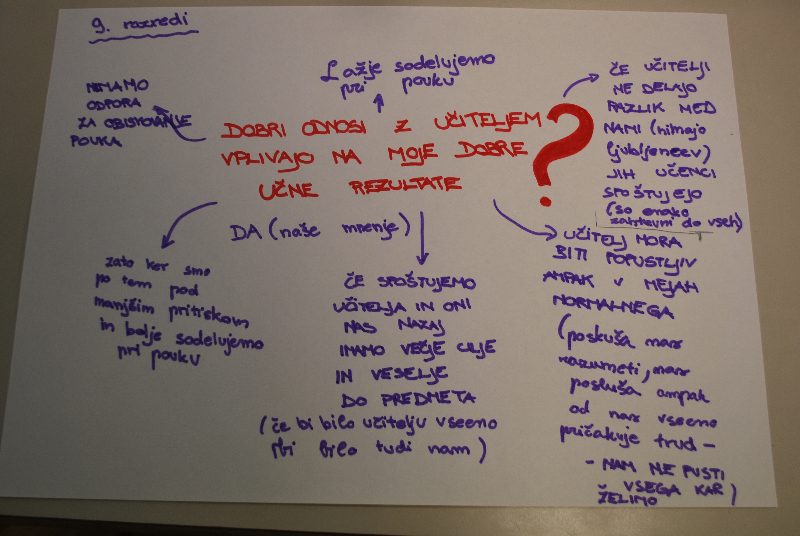 9. razredi
NIMAMO
ODPORA
ZA OBISKOVANJE
POUKA
Lažje sodelujemo
pri pouku
DOBRI ODNOSI Z UČITELJEM
VPLIVAJO NA MOJE DOBRE
UČNE REZULTATE
?
ČE UČITELJI
NE DELAJO
RAZLIK MED
NAMI (nimajo
ljubljencev)
JIH UČENCI
SPOŠTUJEJO
(so enako
zahtevni do vseh)
DA (naše mnenje)
zato ker smo
po tem pod
manjšim pritiskom
in bolje sodelujemo
pri pouku
ČE SPOŠTUJEMO
UČITELJA IN ONI
NAS NAZAJ
IMAMO VEČJE CILJE
IN VESELJE
DO PREDMETA
(če bi bilo učitelju vseeno
bi bilo tudi nam)
UČITELJ MORA
BITI POPUSTLJIV
AMPAK V MEJAH
NORMALNEGA
(poskuša nas
razumeti, nas
posluša ampak
od nas vseeno
pričakuje trud -
- NAM NE PUSTI
VSEGA KAR
ŽELIMO)